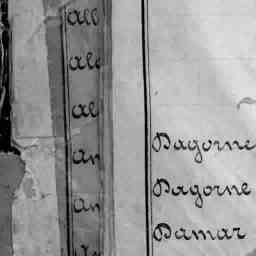 All
Ale
Al
An
An
Dagorne
Dagorne
Damar